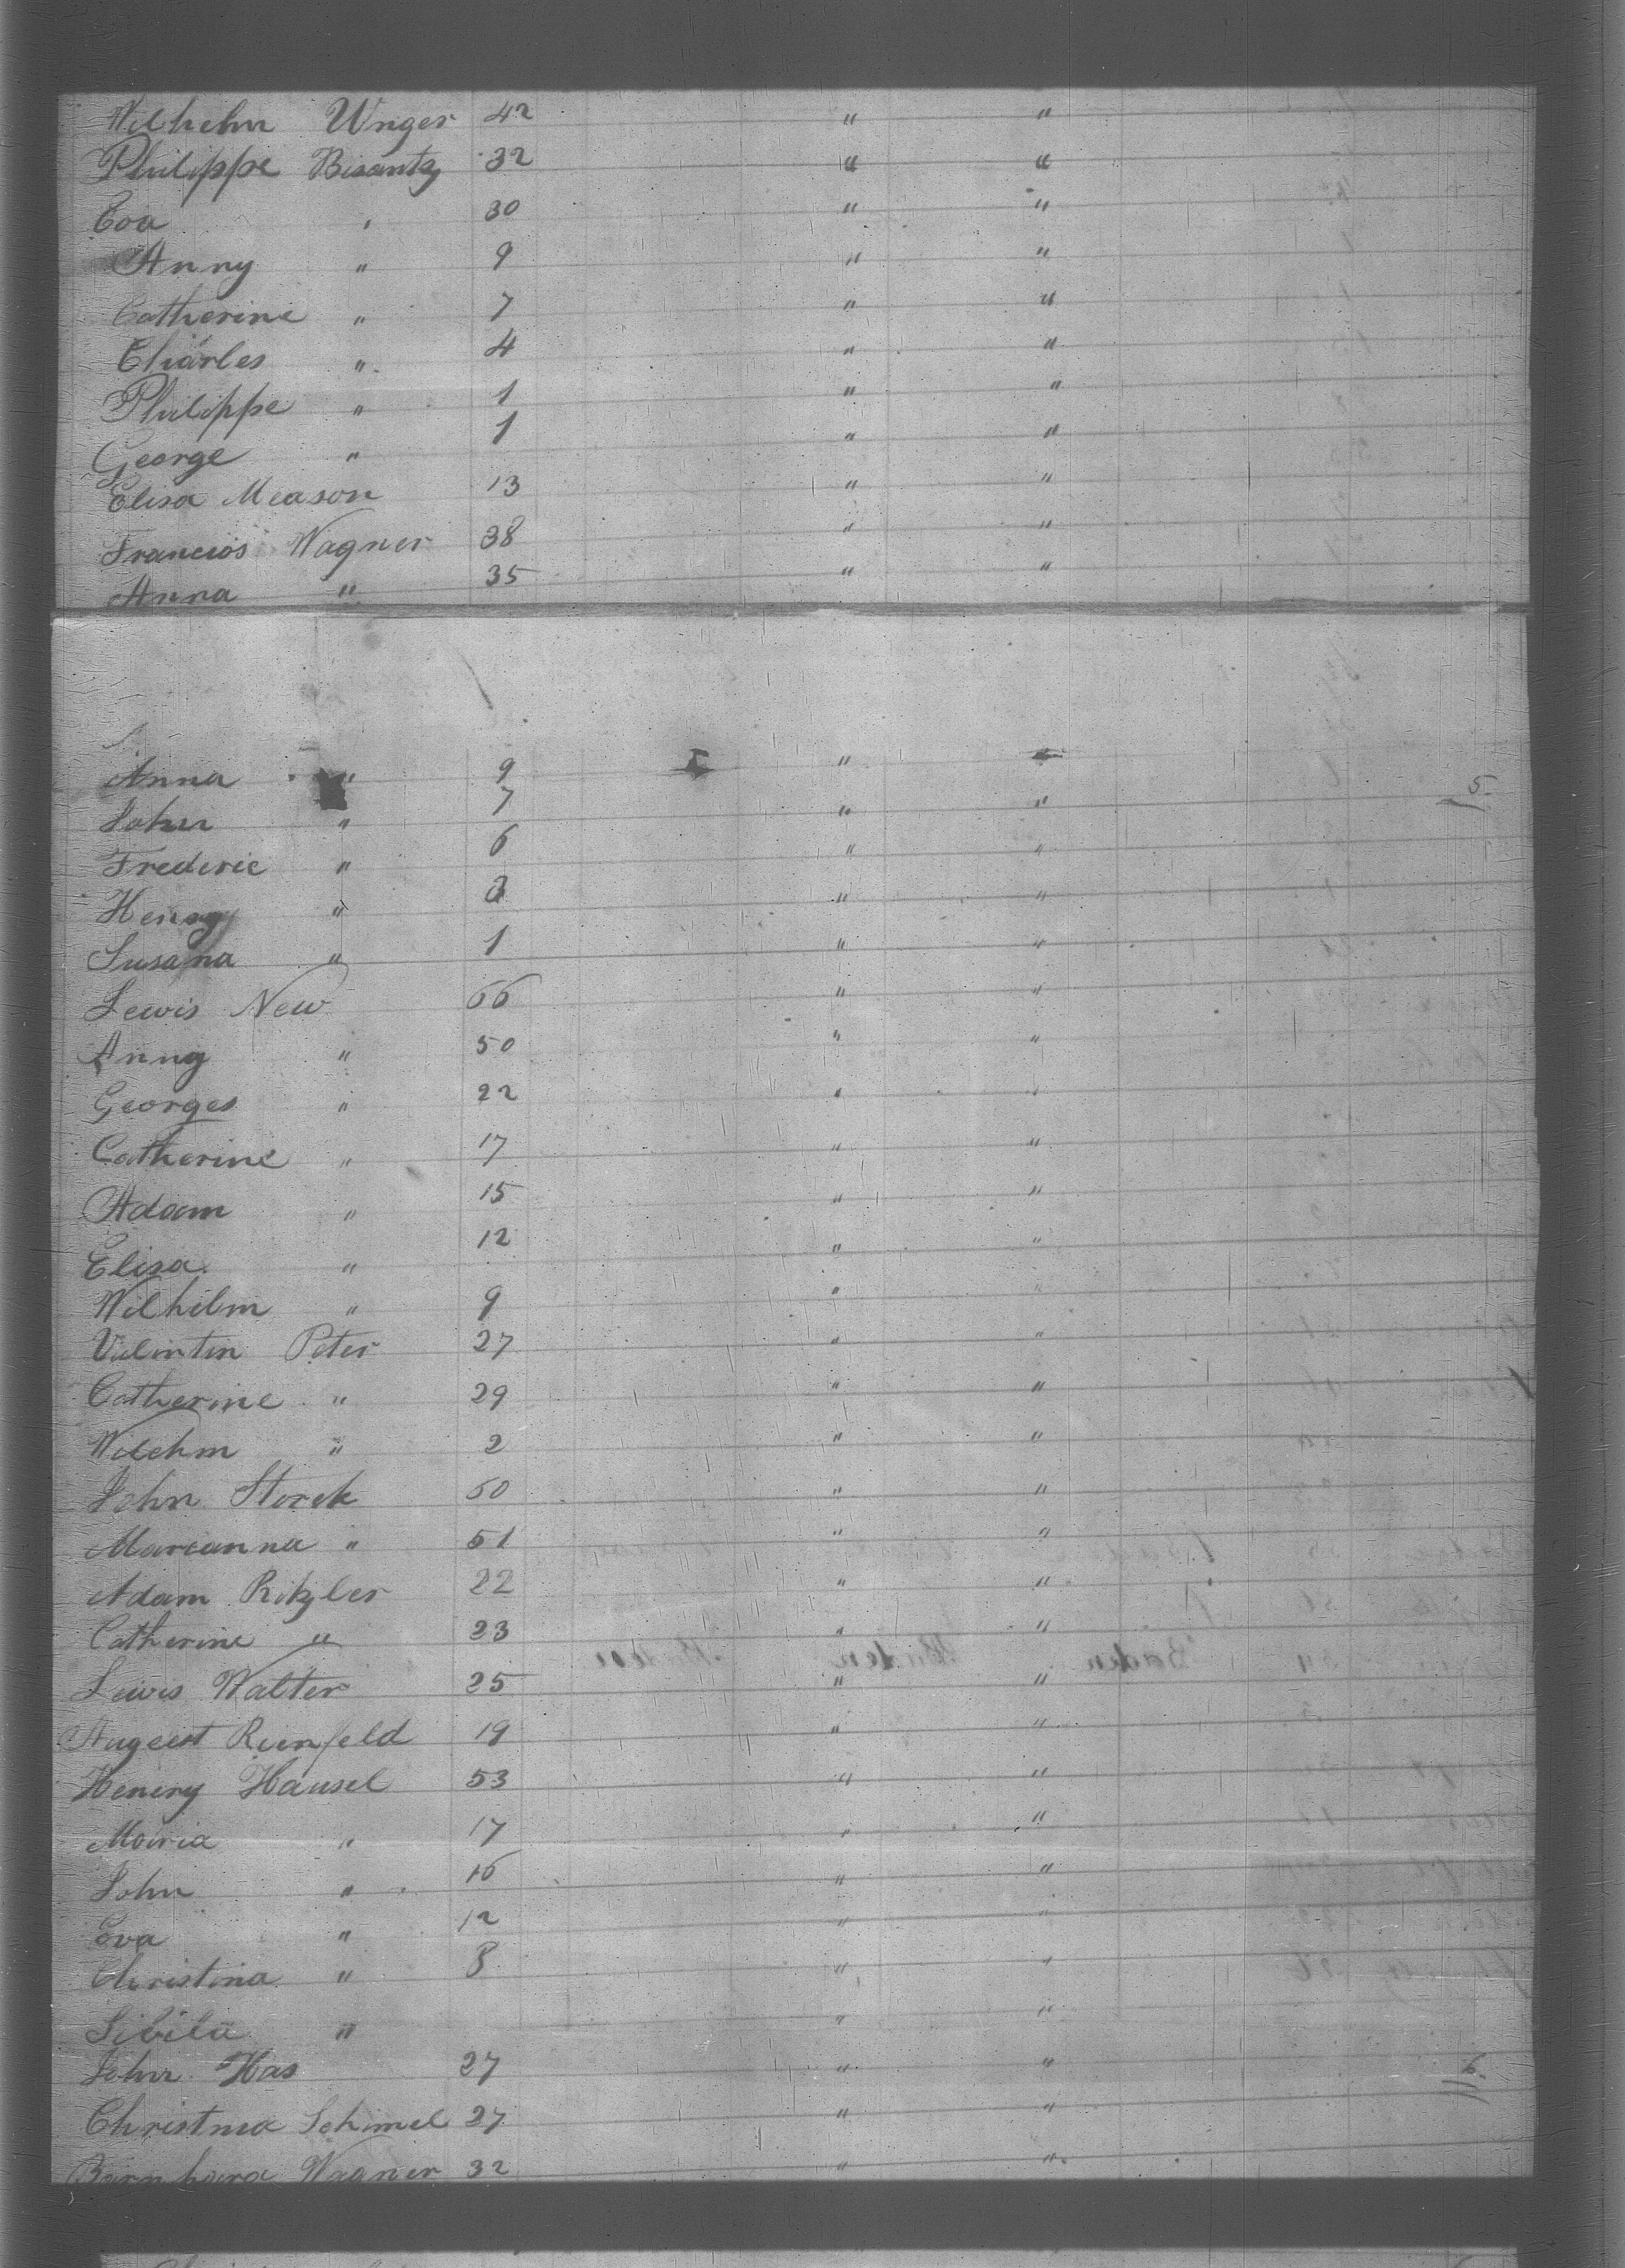 Wilhelm Unger 42 " "
Philippe Bisantz 32 " "
Eva " 30 " "
Anny " 9 " "
Catherine " 7 " "
Charles " 4 " "
Philippe " 1 " "
George " 1 " "
Elisa Meason 13 " "
Francios Wagner 38 " "
Anna " 35 " "
Anna " 9 " "
John " 7 " " 5.
Frederic " 6 " "
Henry " 3 " "
Susana " 1 " "
Lewis New 66 " "
Anny " 50 " "
Georges " 22 " "
Catherine " 17 " "
Adam " 15 " "
Elisa " 12 " "
Wilhelm " 9 " "
Valintin Peter 27 " "
Catherine " 29 " "
Wilehm " 2 " "
John Storck 60 " "
Marianna " 51 " "
Adam Ritzler 22 " "
Catherine " 23 " "
Lewis Walter 25 " "
August Rienfeld 19 " "
Henery Hausel 53 " "
Maria " 17 " "
John " 16 " "
Eva " 12 " "
Christina " 8 " "
Sibila " " "
John Has 27 " " 6.
Christina Schimel 27 " "
Barnhara Wagner 32 " "